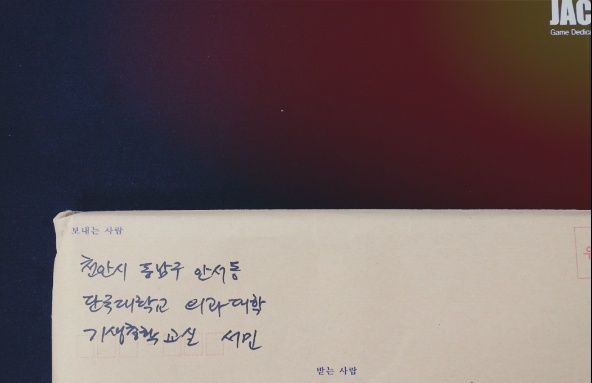 JAC
Game Dedica
보내는 사람
천안시 동남구 안서동
단국대학교 의과대학
기생충학교실 서민
우
받는 사람